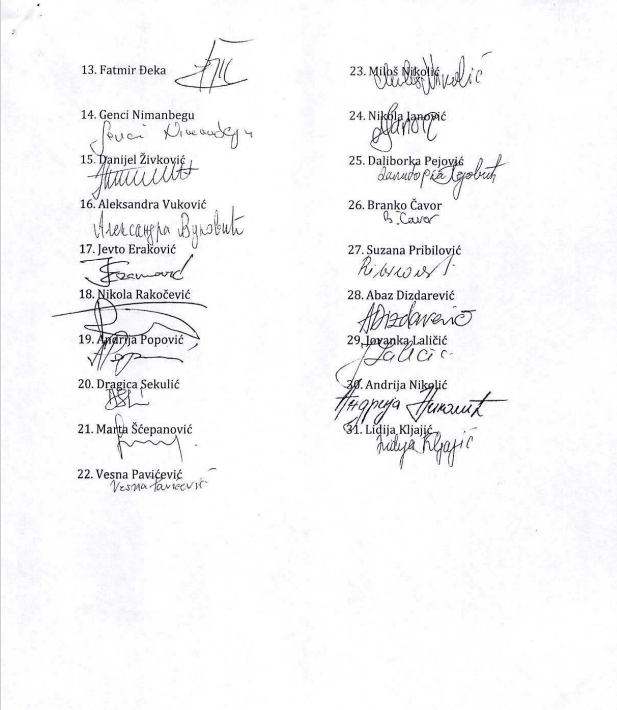 13. Fatmir Đeka
14. Genci Nimanbegu
Genci Nimanbegu
15. Danijel Živković
16. Aleksandra Vuković
Александра Вуковић
17. Jevto Eraković
18. Nikola Rakočević
19. Andrija Popović
20. Dragica Sekulić
21. Marta Šćepanović
22. Vesna Pavićević
Vesna Pavićević
23. Miloš Nikolić
Miloš Nikolić
24. Nikola Janović
25. Daliborka Pejović
Далиборка Пејовић
26. Branko Čavor
B. Čavor
27. Suzana Pribilović
28. Abaz Dizdarević
ADizdarević
29. Jovanka Laličić
Laličić
30. Andrija Nikolić
Андрија Николић
31. Lidija Kljajić
Lidija Kljajić